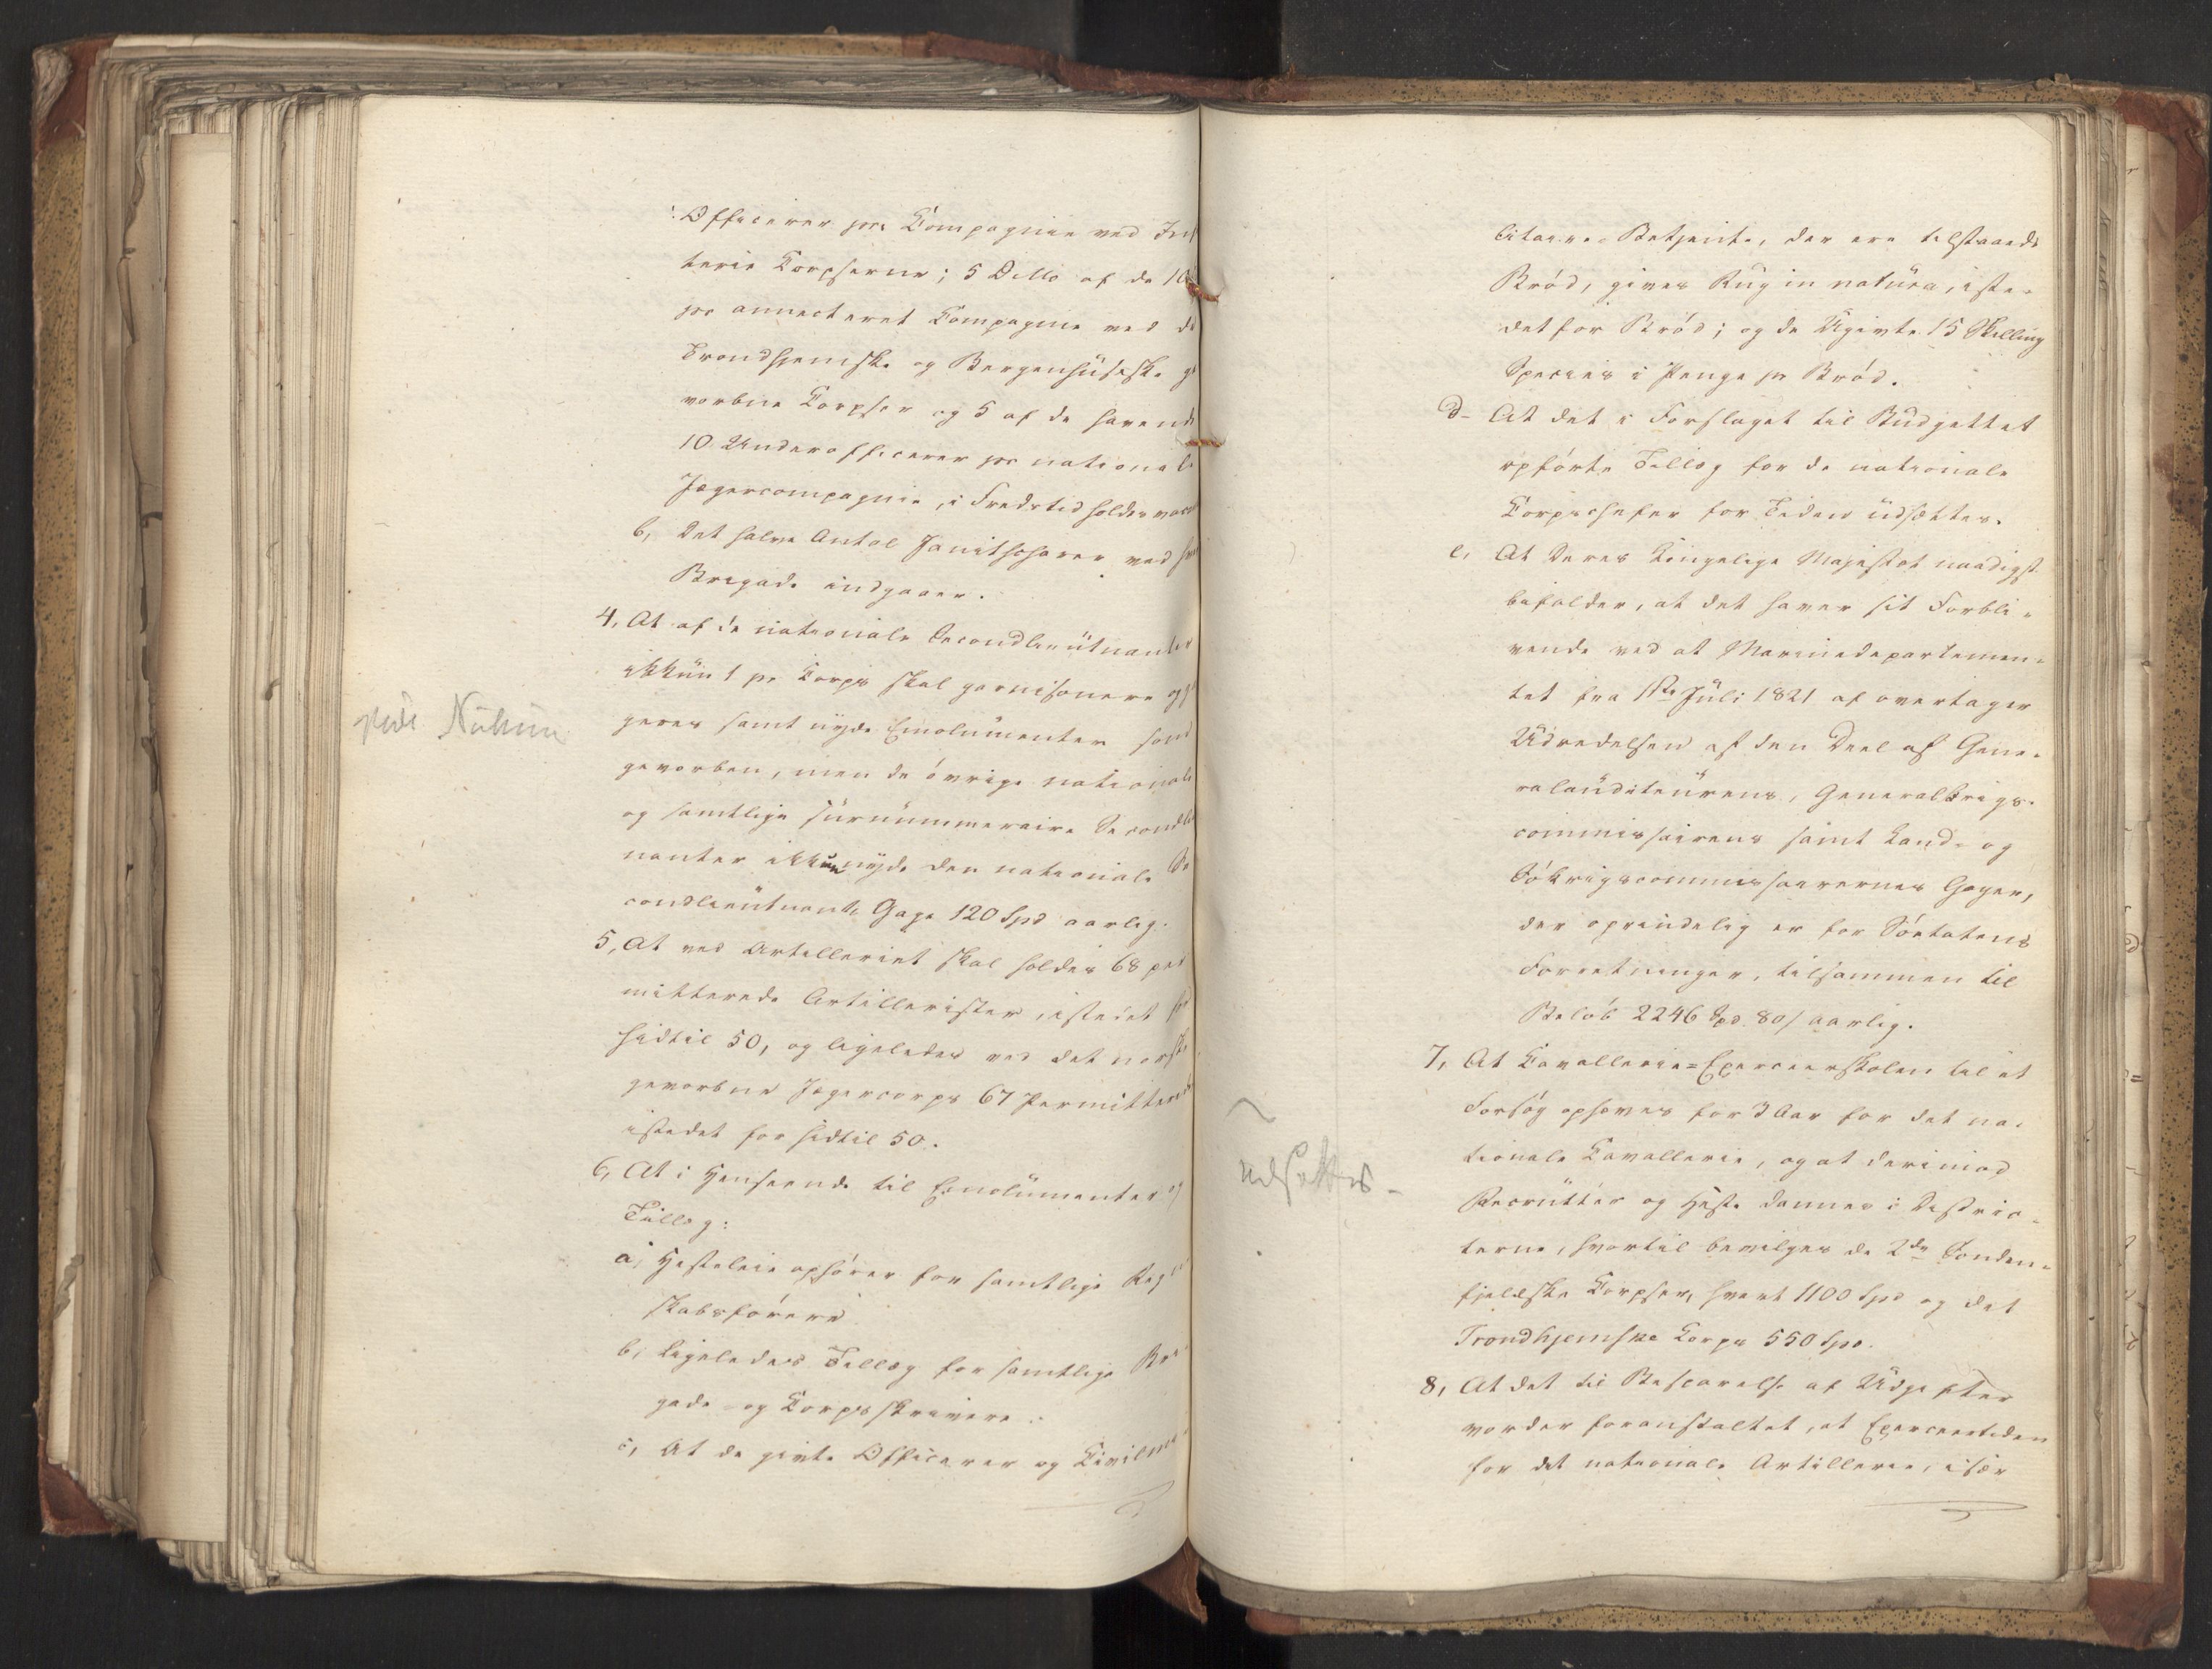 Officerer pr Compagnie ved Inf
terie Corpserne; 5 Ditto af de 10
pr annecteret Compagnie ved de
Trondhjemske og Bergenhusiske ge
vorbne Corpser og 5 af de havende
10 Underofficerer pr nationale
Jægercompagnie, i Fredstid holdes vacant
b, Det halve Antal Janitscharer ved hver
Brigade indgaaer.
4, At af de nationale Secondlieutnanter
ikkun 1 pr Corps skal garnisonere og
geres samt nyde Emolumenter som
gevorben, men de övrige nationale
og samtlige surnummeraire Secondl
nanter ikkun nyde den nationale Se
condlieutnants Gage 120 Spd aarlig.
5, At ved Artilleriet skal holdes 68 per
mitterede Artillerister, istedet for
hidtil 50, og ligeledes ved det norske
gevorbne Jægercorps 67 Permitterede
istedet for hidtil 50.
6, At i Henseende til Emolumenter og
Tillæg:
a, Hesteleie ophörer for samtlige Regn
skabsförere
b, Ligeledes Tillæg for samtlige Bri
gade- og Corpsskrivere.
c, At de givte Officerer og Civilmi
litaire-Betjente, der ere tilstaaede
Bröd, gives Rug in natura, iste-
det for Bröd; og de Ugivte 15 Skilling
Species i Penge pr Bröd.
d- At det i Forslaget til Budgettet
opförte Tillæg for de nationale
Corpschefer for Tiden udsættes.
e, At Deres Kongelige Majestæt naadigst
befalder, at det haver sit Forbli-
vende ved at Marinedepartemen-
tet fra 1ste Juli 1821 af overtager
Udredelsen af den Deel af Gene-
ralauditeurens, Generalkrigs-
commissairens samt Land- og
Sökrigscommissairernes Gager,
der oprindelig er for Söetatens
Forretninger, tilsammen til
Belöb 2246 Spd. 80/ aarlig.
7, At Cavallerie=Exerceerskolen til et
Forsög ophæves for 3 Aar for det na-
tionale Cavallerie, og at derimod
Recrutter og Heste dannes i Distric-
terne, hvortil bevilges de 2de Sönden-
fjeldske Corpser, hvert 1100 Spd og det
Trondhjemske Corps 550 Spd.
udsættes-
8, At det til Besparelse af Udgifter
vorder foranstaltet, at Exerceertiden
for det nationale Artillerie, især